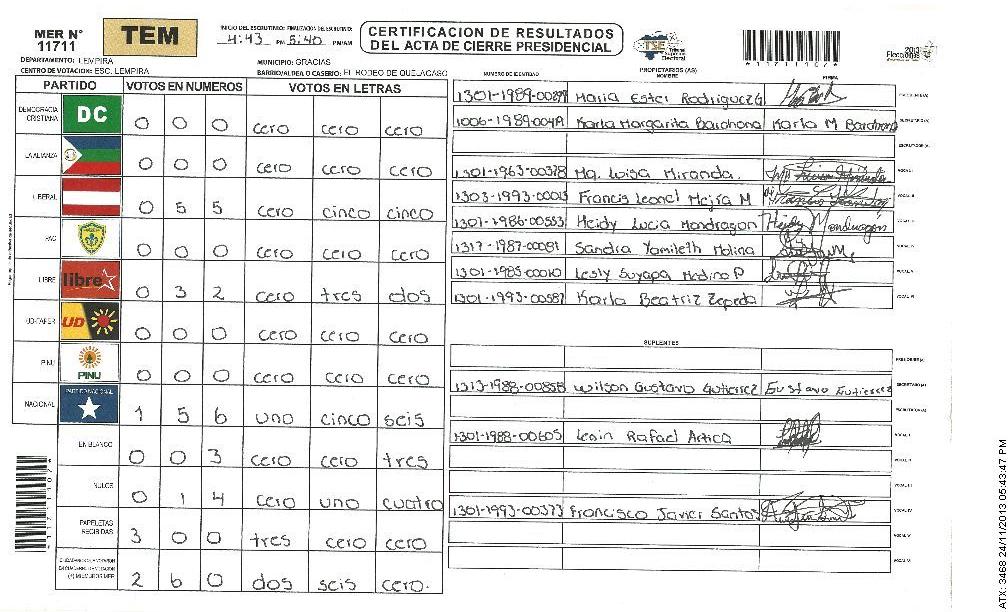 MER N° 11711
TEM
INICIO DEL ESCRUTINIO: FINALIZACION DEL ESCRUTINIO:
4:43 PM 5:40 PM/AM
CERTIFICACION DE RESULTADOS
DEL ACTA DE CIERRE PRESIDENCIAL
TSE Tribunal Supremo Electoral
2013
DEPARTAMENTO: LEMPIRA
MUNICIPIO: GRACIAS
CENTRO DE VOTACION: ESC. LEMPIRA
BARRIO/ALDEA O CASERIO: EL RODEO DE QUELACASQ
PARTIDO VOTOS EN NUMEROS VOTOS EN LETRAS
DEMOCRACIA CRISTIANA DC 0 0 0 cero cero cero
LA ALIANZA 0 0 0 cero cero cero
LIBERAL 0 5 5 cero cinco cinco
PAC 0 0 0 cero cero cero
LIBRE libre 0 3 2 cero tres dos
UD-FAPER UD 0 0 0 cero cero cero
PINU PINU 0 0 0 cero cero cero
NACIONAL PARTIDO NACIONAL 1 5 6 uno cinco seis
EN BLANCO 0 0 3 cero cero tres
NULOS 0 1 4 cero uno cuatro
PAPELETAS RECIBIDAS 3 0 0 tres cero cero
(+) MIEMBROS MER 2 6 0 dos seis cero.
NUMERO DE IDENTIDAD PROPIETARIOS (AS) NOMBRE FIRMA
1301-1989- Maria Ester Rodriguez G
1006-1989- Karla Margarita Barahona Karla M Barahona
1301-1963-00378 Ma. Luisa Miranda.
1303-1993-00013 Francis Leonel Mejia M
1301-1986-00553 Heidy Lucia Mondragon Heidy Mondragón
1317-1987-00081 Sandra Yamileth Molina
1301-1985-00010 Lesly Suyapa Medina P
1301-1993-00587 Karla Beatriz Zepeda
SUPLENTES
1313-1988-00858 Wilson Gustavo Gutierrez Gustavo Gutierrez
1301-1988-00605 Lenin Rafael Artica
1301-1993-00373 Francisco Javier Santos
ATX: 3468 24/11/2013 05:43:47 PM